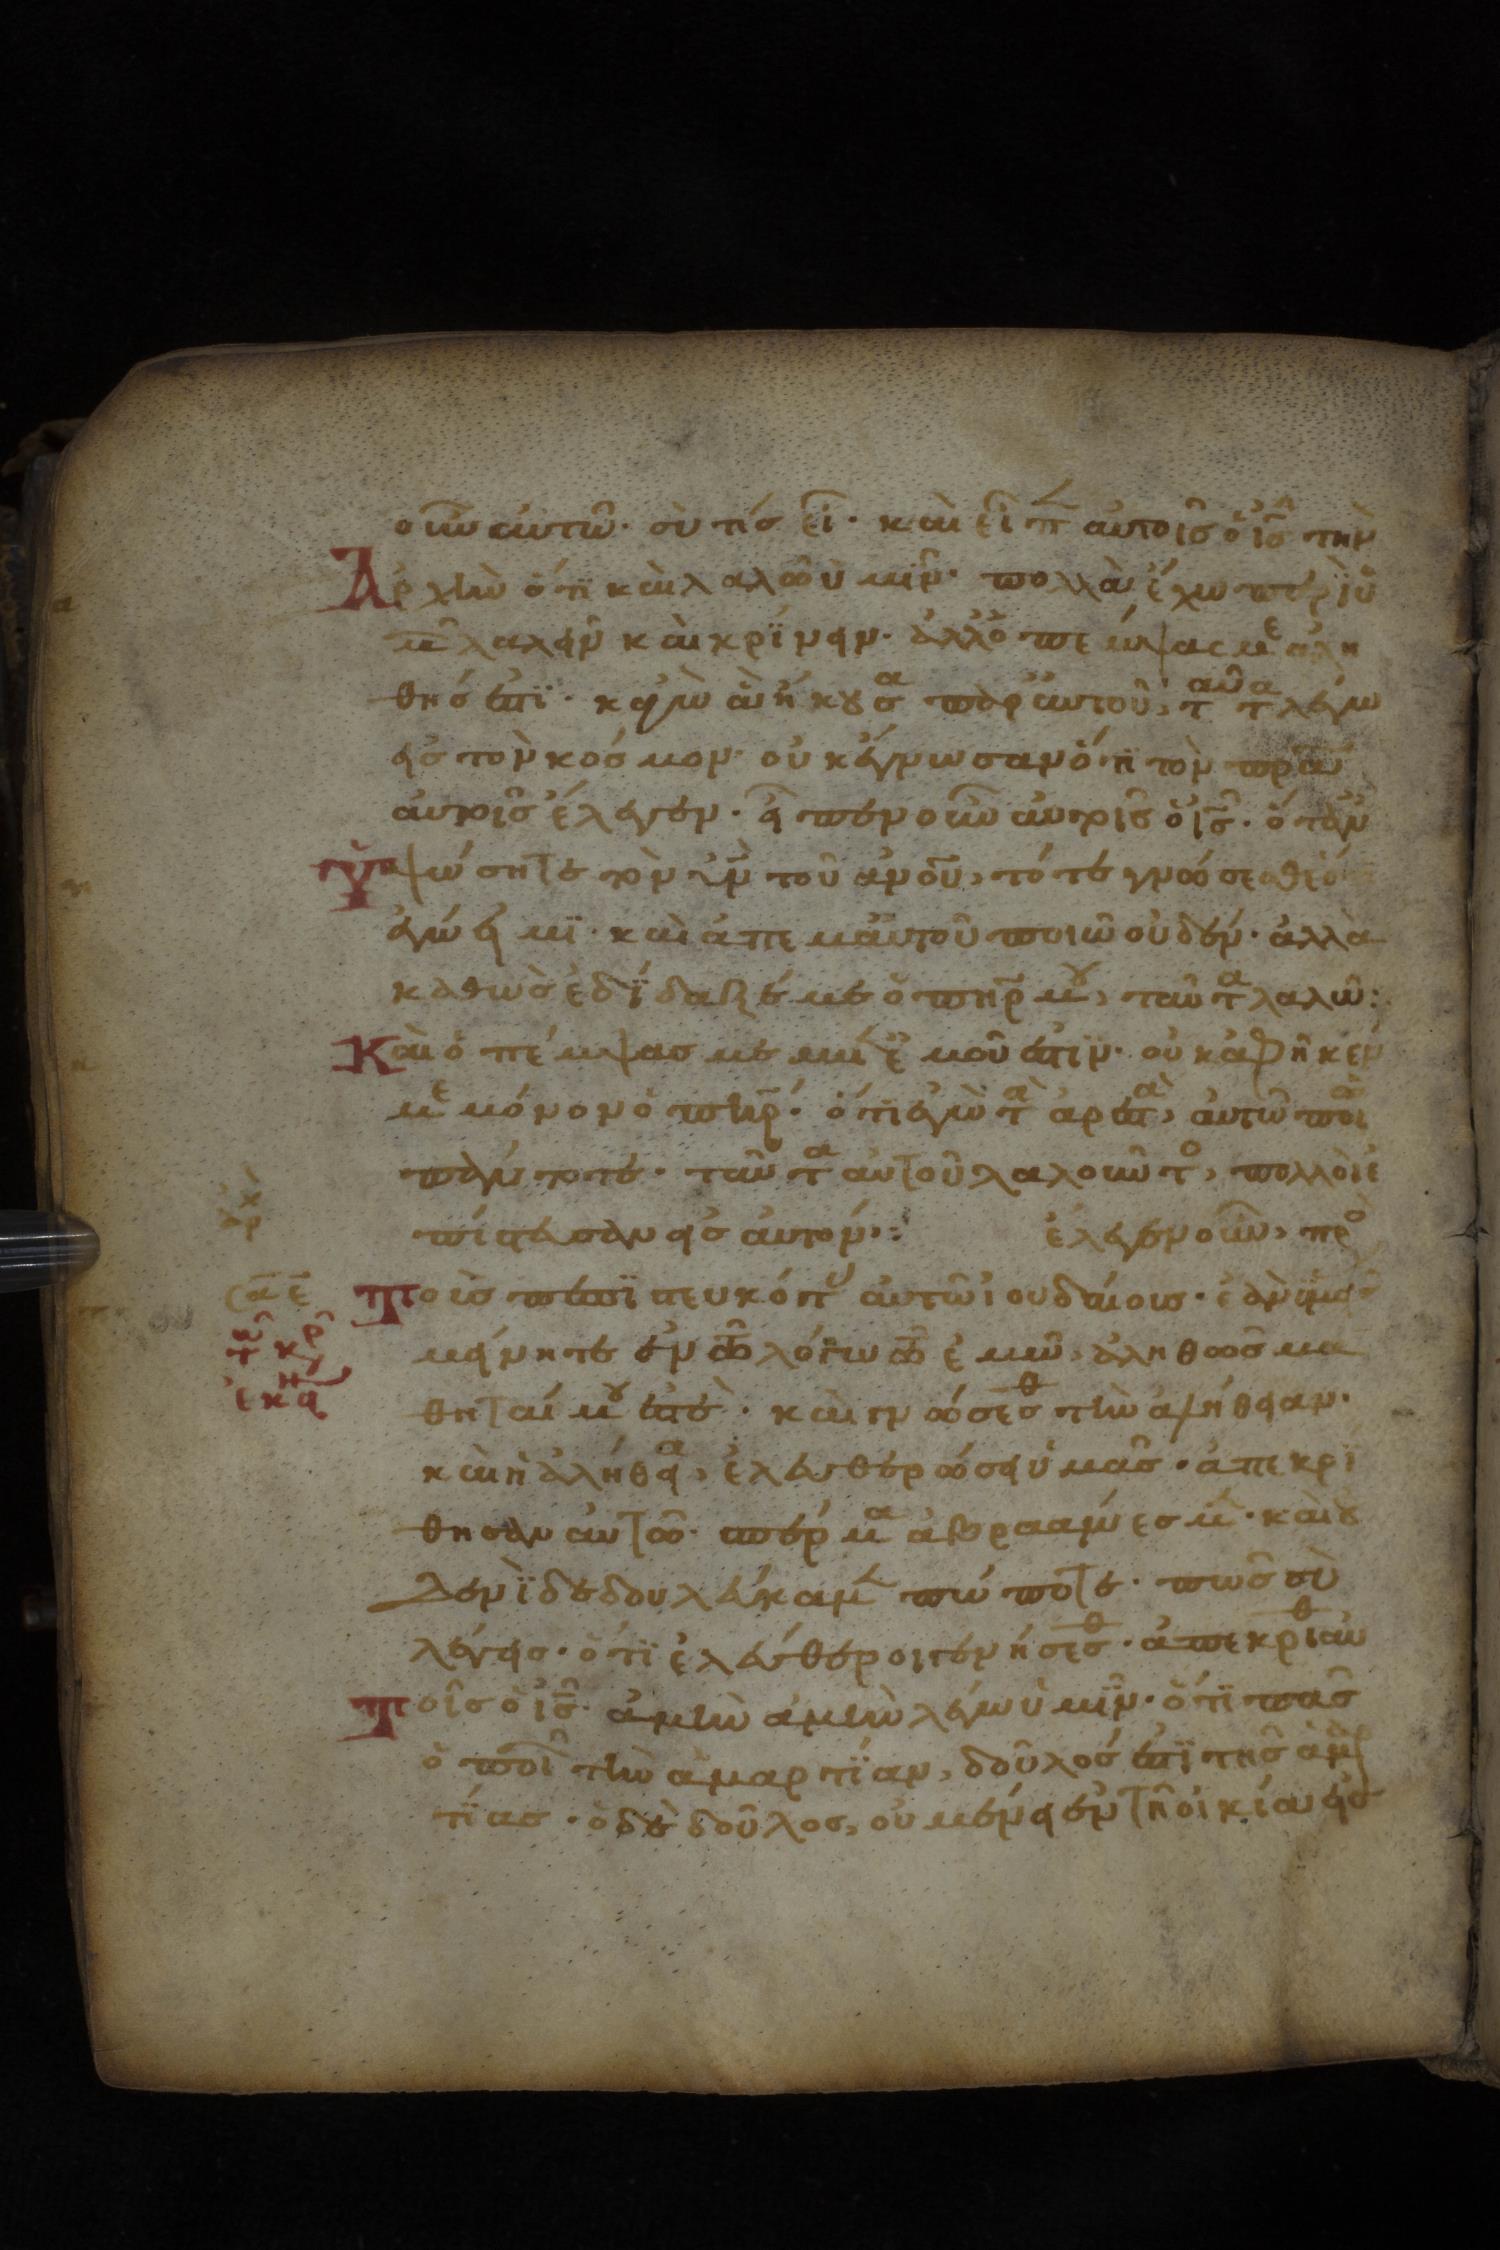 οῦν αὐτῶ· σὺ τίς εῖ· καὶ εῖπ αὐτοῖς ὁ ἰς τὴν
Ἀρχὴν ὅτι καὶ λαλῶ ὑμῖν· πολλὰ ἔχω περὶ ὑ
μ λαλεῖν καὶ κρίνειν· ἀλλ ὁ πέμψας με ἀλη
θής ἐστι· καγὼ ἃ ἤκουσα παρ αὐτοῦ, ταῦτα λέγω
εἰς τὸν κόσμον· οὐκ ἔγνωσαν ὅτι τὸν πρα
αὐτοῖς ἔλεγεν· εἶπεν οῦν αὐτοῖς ὁ ις· ὅταν
Ὑψώσητε τὸν υν τοῦ ανου, τότε γνώσεσθε ὅτι
ἐγώ εἰμι· καὶ ἀπ ἐμαυτοῦ ποιῶ οὐδέν· ἀλλὰ
καθὼς ἐδίδαξέ με ὁ πηρ μου, ταῦτα λαλῶ:
Καὶ ὁ πέμψας με μετ ἐμοῦ ἐστιν· οὐκ ἀφῆκέν
με μόνον ὁ πηρ· ὅτι ἐγὼ τὰ ἀρεστὰ, αὐτῶ ποι
πάντοτε· ταῦτα αὐτοῦ λαλοῦντο, πολλοὶ ἐ
πίστευσαν εἰς αὐτόν: ἔλεγεν οῦν, προ
Τοὺς πεπιστευκότ αὐτῶ ἰουδαίους· ἐὰν ὑμεῖς
μείνητε ἐν τῶ λόγω τῶ ἐμῶ, ἀληθῶς μα
θηταί μου ἐστὲ· καὶ γνώσεσθ τὴν ἀλήθειαν·
καὶ ἡ ἀλήθεια, ἐλευθερώσει ὑμᾶς· ἀπεκρί
θησαν αὐτῶ· σπέρμα ἀβραάμ ἐσμ· καὶ οὐ
Δενὶ δεδουλεύκαμ πώποτε· πῶς σὺ
λέγεις· ὅτι ἐλεύθεροι γενήσεσθ· ἀπεκρίθ αὐ
Τοῖς ὁ ις· ἀμὴν ἀμὴν λέγω ὑμῖν· ὅτι πᾶς
ὁ ποι τὴν ἁμαρτίαν, δοῦλός ἐστι τῆς ἁμαρ
τίας· ὁ δὲ δοῦλος, οὐ μένει ἐν τῆ οἰκία εἰς